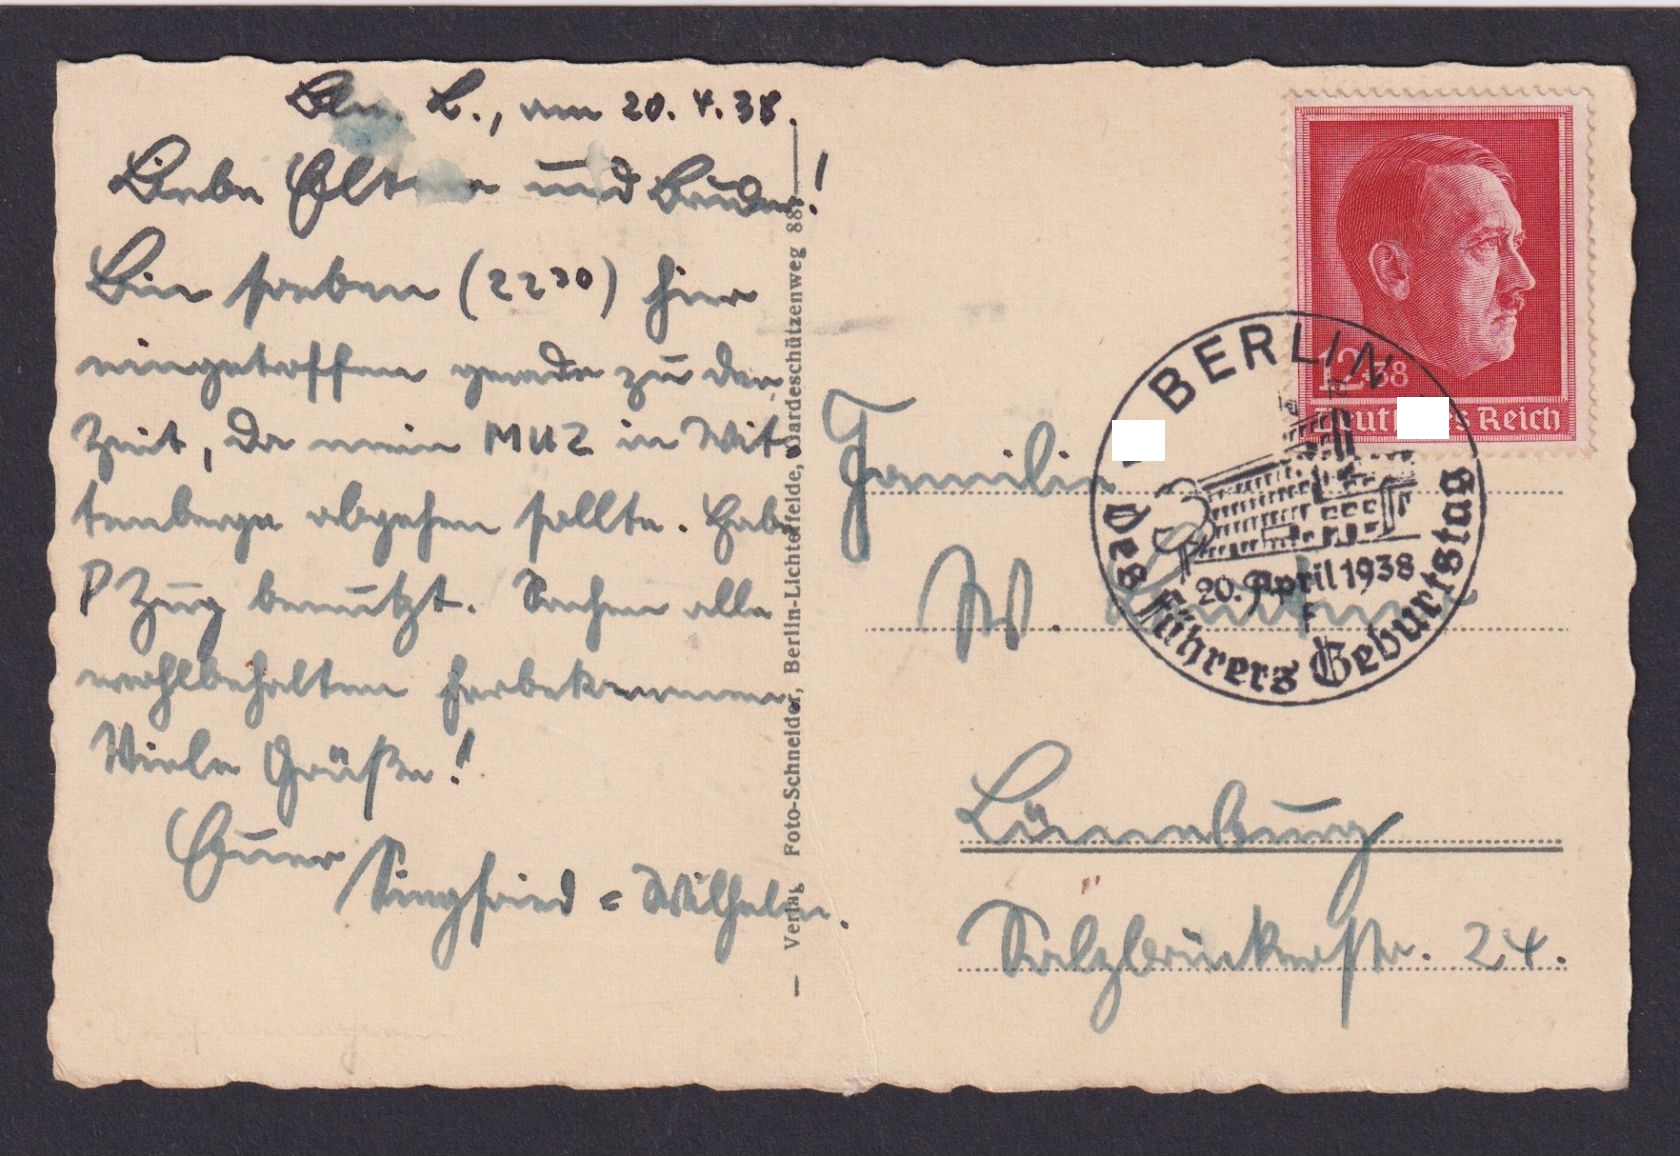 Bln. L., am 20.4.38.
Liebe Eltern und Bruder!
Bin soeben (22³⁰) hier
eingetroffen gerade zu der
Zeit, da mein MUZ in Wit-
tenberge abgehen sollte. Habe
P Zug benutzt. Sachen alle
wohlbehalten herbekommen
Viele Grüße!
Euer
Siegfried = Wilhelm.
— Verlag Foto-Schneider, Berlin-Lichterfelde, Gardeschützenweg 88 —
12+38
Deutsches Reich
BERLIN
20. April 1938
F
Des Führers Geburtstag
Familie
W.
Lüneburg
Salzbrückerstr. 24.